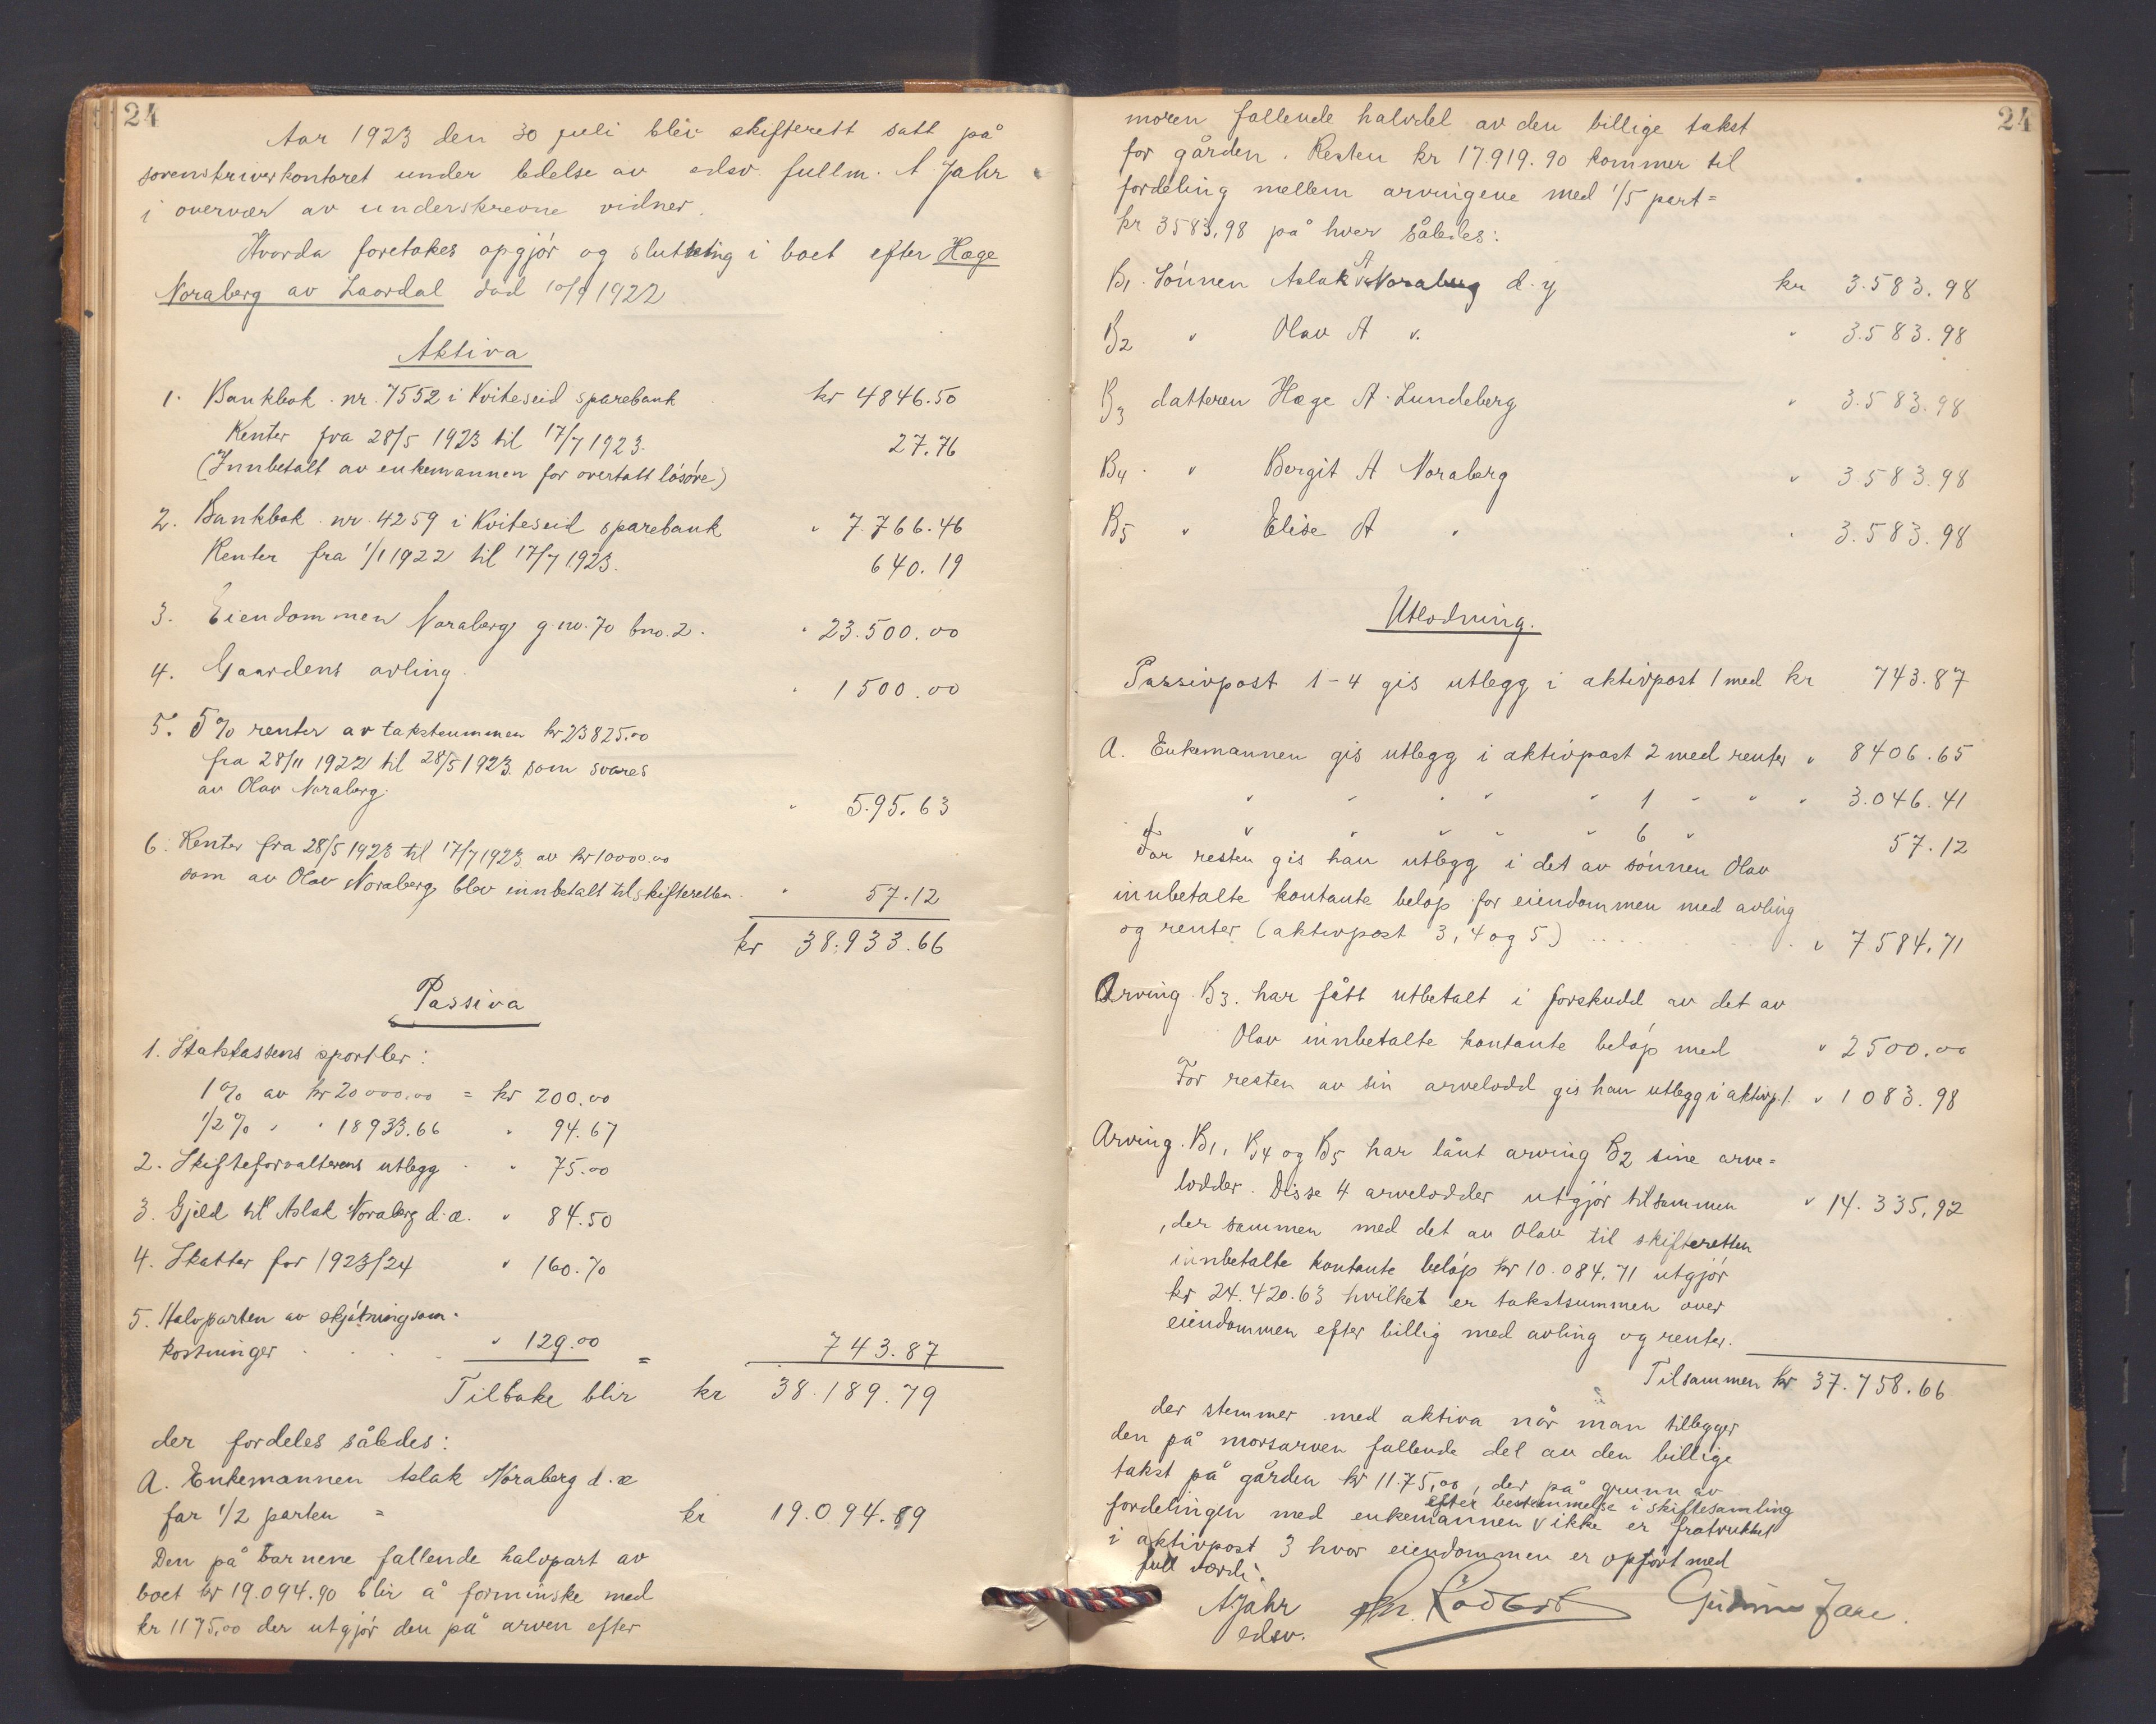 24
Aar 1923 den 30 juli blev skifterett satt på
sorenskriverkontoret under ledelse av edsv. fullm. A Jahr
i overvær av underskrevne vidner.
Hvorda foretokes opgjør og slutning i boet efter Hæge
Noraberg av Laardal død 10/9 1922
Aktiva
1. Bankbok nr. 7552 i Kviteseid sparebank kr 4846.50
Renter fra 28/5 1923 til 17/7 1923. 27.76
(Innbetalt av enkemannen for overtatt løsøre)
2. Bankbok nr. 4259 i Kviteseid sparebank " 7.766.46
Renter fra 1/1 1922 til 17/7 1923. 640.19
3. Eiendommen Noraberg g.no. 70 bno. 2. " 23.500.00
4. Gaardens avling. " 1500.00
5. 5% renter av takstsummen kr 23825.00
fra 28/11 1922 til 28/5 1923 som svares
av Olav Noraberg. " 595.63
6. Renter fra 28/5 1923 til 17/7 1923 av kr 10000.00
som av Olav Noraberg blev innbetalt til skifteretten. " 57.12
kr 38.933.66
Passiva
1. Statskassens sportler:
1% av kr 20000.00 = kr 200.00
1/2% " " 18933.66 " 94.67
2. Skifteforvalterens utlegg " 75.00
3. Gjeld til Aslak Noraberg d.æ. " 84.50
4. Skatter for 1923/24 " 160.70
5. Halvparten av skjøtningsom-
kostninger " 129.00 = 743.87
Tilbake blir kr 38.189.79
der fordeles således:
A. Enkemannen Aslak Noraberg d.æ
far 1/2 parten = kr 19.094.89
Den på barnene fallende halvpart av
boet kr 19.094.90 blir å forminske med
kr 1175.00 der utgjør den på arven efter
24
moren fallende halvdel av den billige takst
for gården. Resten kr 17.919.90 kommer til
fordeling mellem arvingene med 1/5 part =
kr 3583.98 på hver således:
B1. Sønnen Aslak A Noraberg d.y kr 3.583.98
B2 " Olav A " " 3.583.98
B3 datteren Hæge A. Lundeberg " 3.583.98
B4. " Bergit A Noraberg " 3.583.98
B5 " Elise A " " 3.583.98
Utlodning.
Passivpost 1-4 gis utlegg i aktivpost 1 med kr 743.87
A. Enkemannen gis utlegg i aktivpost 2 med renter " 8406.65
" " " " " 1 " " " 3.046.41
" " " " " 6 " 57.12
For resten gis han utlegg i det av sønnen Olav
innbetalte kontante beløp for eiendommen med avling
og renter (aktivpost 3, 4 og 5) " 7584.71
Arving B3. har fått utbetalt i forskudd av det av
Olav innbetalte kontante beløp med " 2500.00
For resten av sin arvelodd gis han utlegg i aktivp. 1. " 1083.98
Arving. B1, B4 og B5 har lånt arving B2 sine arve=
lodder. Disse 4 arvelodder utgjør tilsammen " 14.335.92
, der sammen med det av Olav til skifteretten
innbetalte kontante beløp kr 10.084.71 utgjør
kr 24.420.63 hvilket er takstsummen over
eiendommen efter billig med avling og renter.
Tilsammen kr 37.758.66
der stemmer med aktiva når man tillegger
den på morsarven fallende del av den billige
takst på gården kr 1175,00, der på grunn av
efter bestemmelse i skiftesamling
fordelingen med enkemannen v ikke er fratrukket
i aktivpost 3 hvor eiendommen er opført med
full værdi.
A Jahr
edsv.
Gudrun